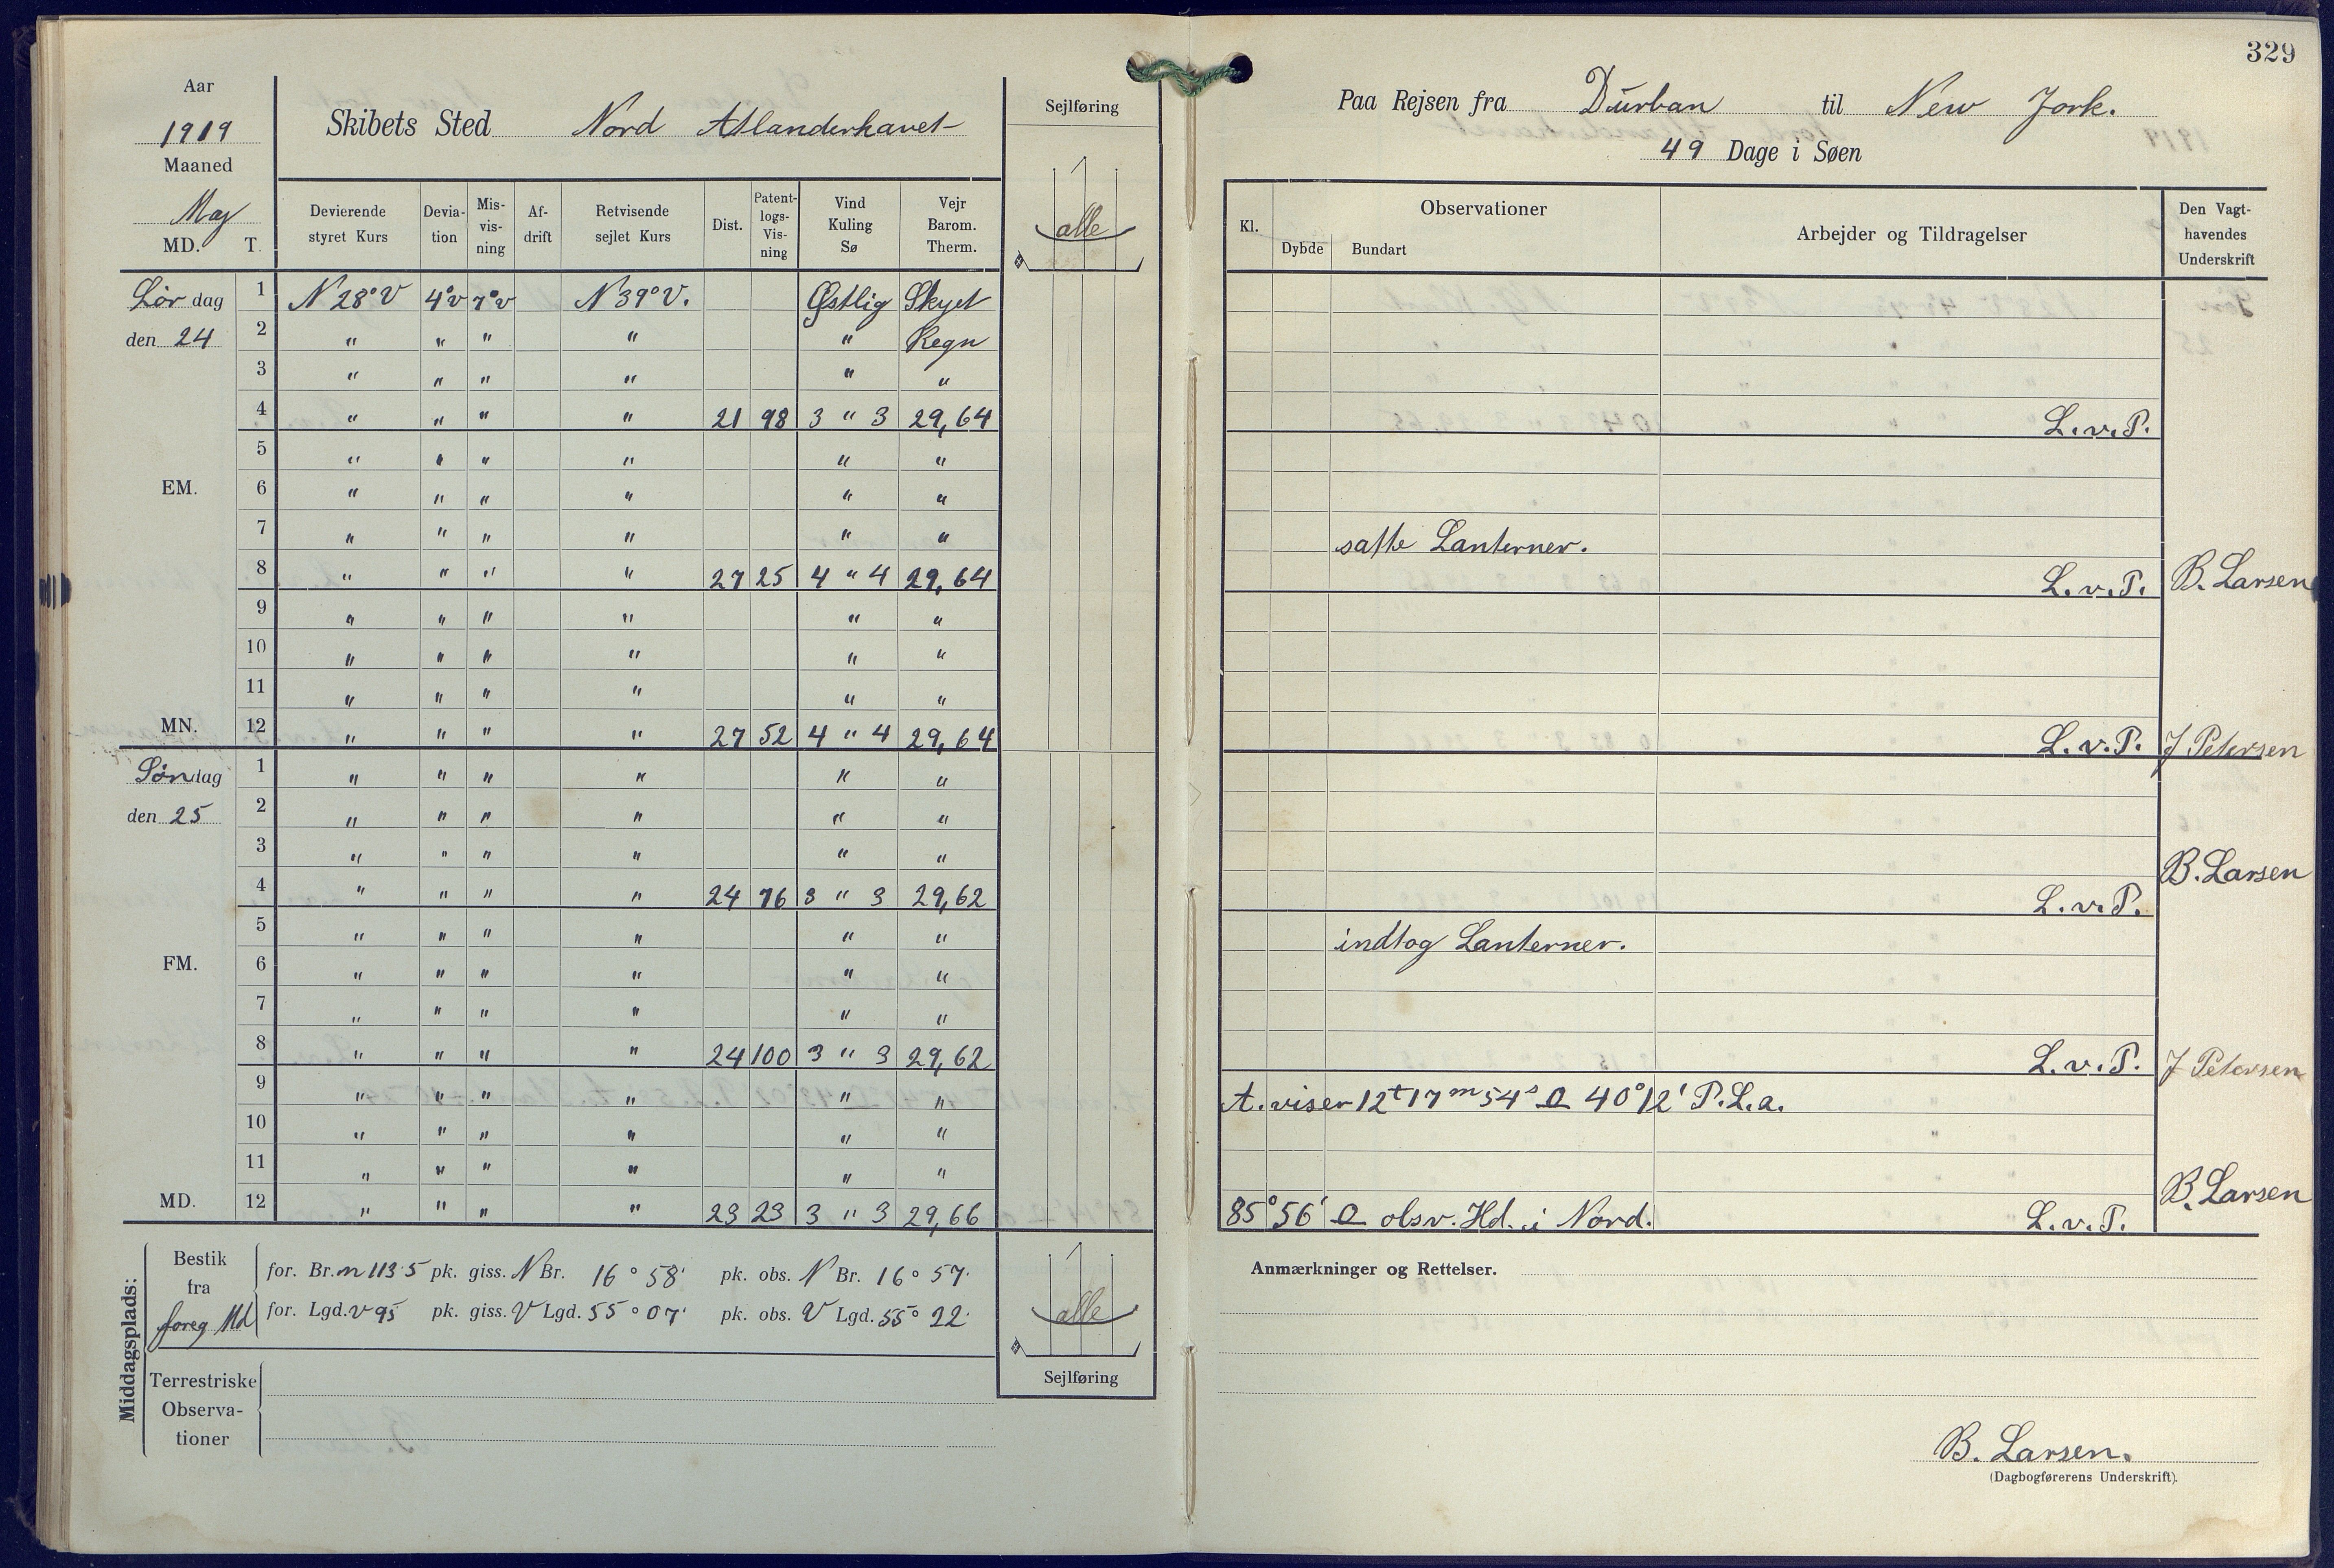 329
Aar
1919
Maaned
Maj
MD. T.
Skibets Sted Nord Atlanderhavet
Sejlføring
Paa Rejsen fra Durban til New York.
49 Dage i Søen
Devierende styret Kurs
Devia-tion
Mis-vis-ning
Af-drift
Retvisende sejlet Kurs
Dist.
Patent-logs-Vis-ning
Vind Kuling Sø
Vejr Barom. Therm.
alle
Kl.
Observationer
Dybde Bundart
Arbejder og Tildragelser
Den Vagt-havendes Underskrift
Lør dag 1 N 28° V 4° v 7° v N 39° V. Østlig Skyet
den 24 2 " " " " " Regn
3 " " " " " "
4 " " " " 21 98 3 " 3 29,64 L. v. P.
5 " " " " " "
EM. 6 " " " " " "
7 " " " " " " satte Lanterner.
8 " " " " 27 25 4 " 4 29,64 L. v. P. B. Larsen
9 " " " " " "
10 " " " " " "
11 " " " " " "
MN. 12 " " " " 27 52 4 " 4 29,64 L. v. P. J Petersen
Søn dag 1 " " " " " "
den 25 2 " " " " " "
3 " " " " " "
4 " " " " 24 76 3 " 3 29,62 L. v. P. B. Larsen
5 " " " " " " indtog Lanterner.
FM. 6 " " " " " "
7 " " " " " "
8 " " " " 24 100 3 " 3 29,62 L. v. P. J Petersen
9 " " " " " " A. viser 12t 17m 54s O 40° 12' P. L. a.
10 " " " " " "
11 " " " " " "
MD. 12 " " " " 23 23 3 " 3 29,66 85° 56' O obsv. Hd. i Nord. L. v. P. B. Larsen
Middagsplads:
Bestik fra foreg Md
for. Br. n 113·5 pk. giss. N Br. 16° 58' pk. obs. N Br. 16° 57'
for. Lgd. v 95 pk. giss. V Lgd. 55° 07' pk. obs. V Lgd. 55° 22'
alle
Sejlføring
Terrestriske Observa-tioner
Anmærkninger og Rettelser.
B. Larsen.
(Dagbogførerens Underskrift).